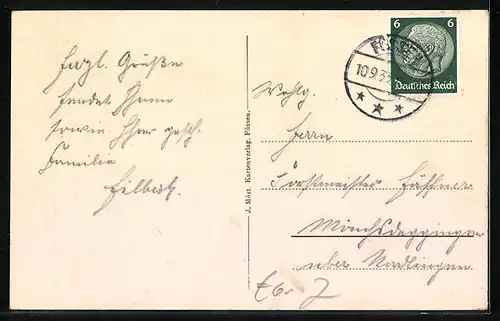 Herzl. Grüße
sendet Ihnen
sowie Ihrer gesch.
Familie
Hilbert.
J. Möst, Kartenverlag, Füssen.
6 6
Deutsches Reich
FÜSSEN
10.9.3
Wohlg.
Herrn
Forstmeister Häffner
Mönchsdeggingen
über Nördlingen